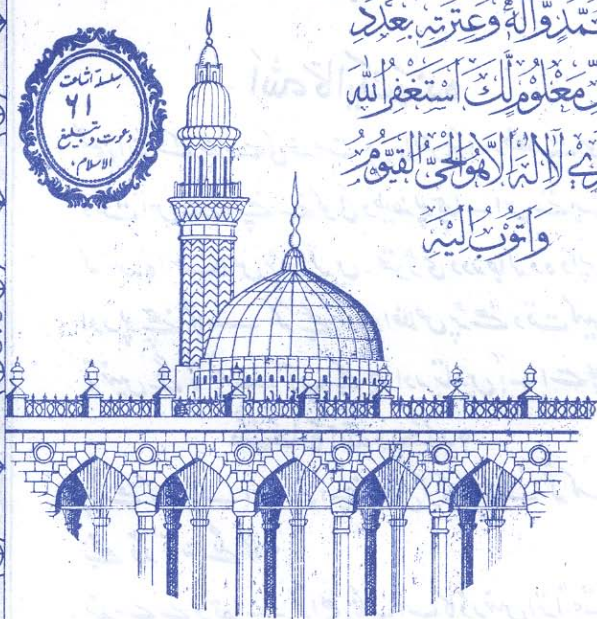 سلسلۂ اشاعت
۶۱
دعوت و تبلیغ
الاسلام
وَّاٰلِهٖ وَعِتْرَتِهٖ بِعَدَدِ
مَعْلُوْمٍ لَّكَ اَسْتَغْفِرُ اللّٰهَ
لَآ اِلٰهَ اِلَّا هُوَ الْحَيُّ الْقَيُّوْمُ
وَاَتُوْبُ اِلَيْهِ